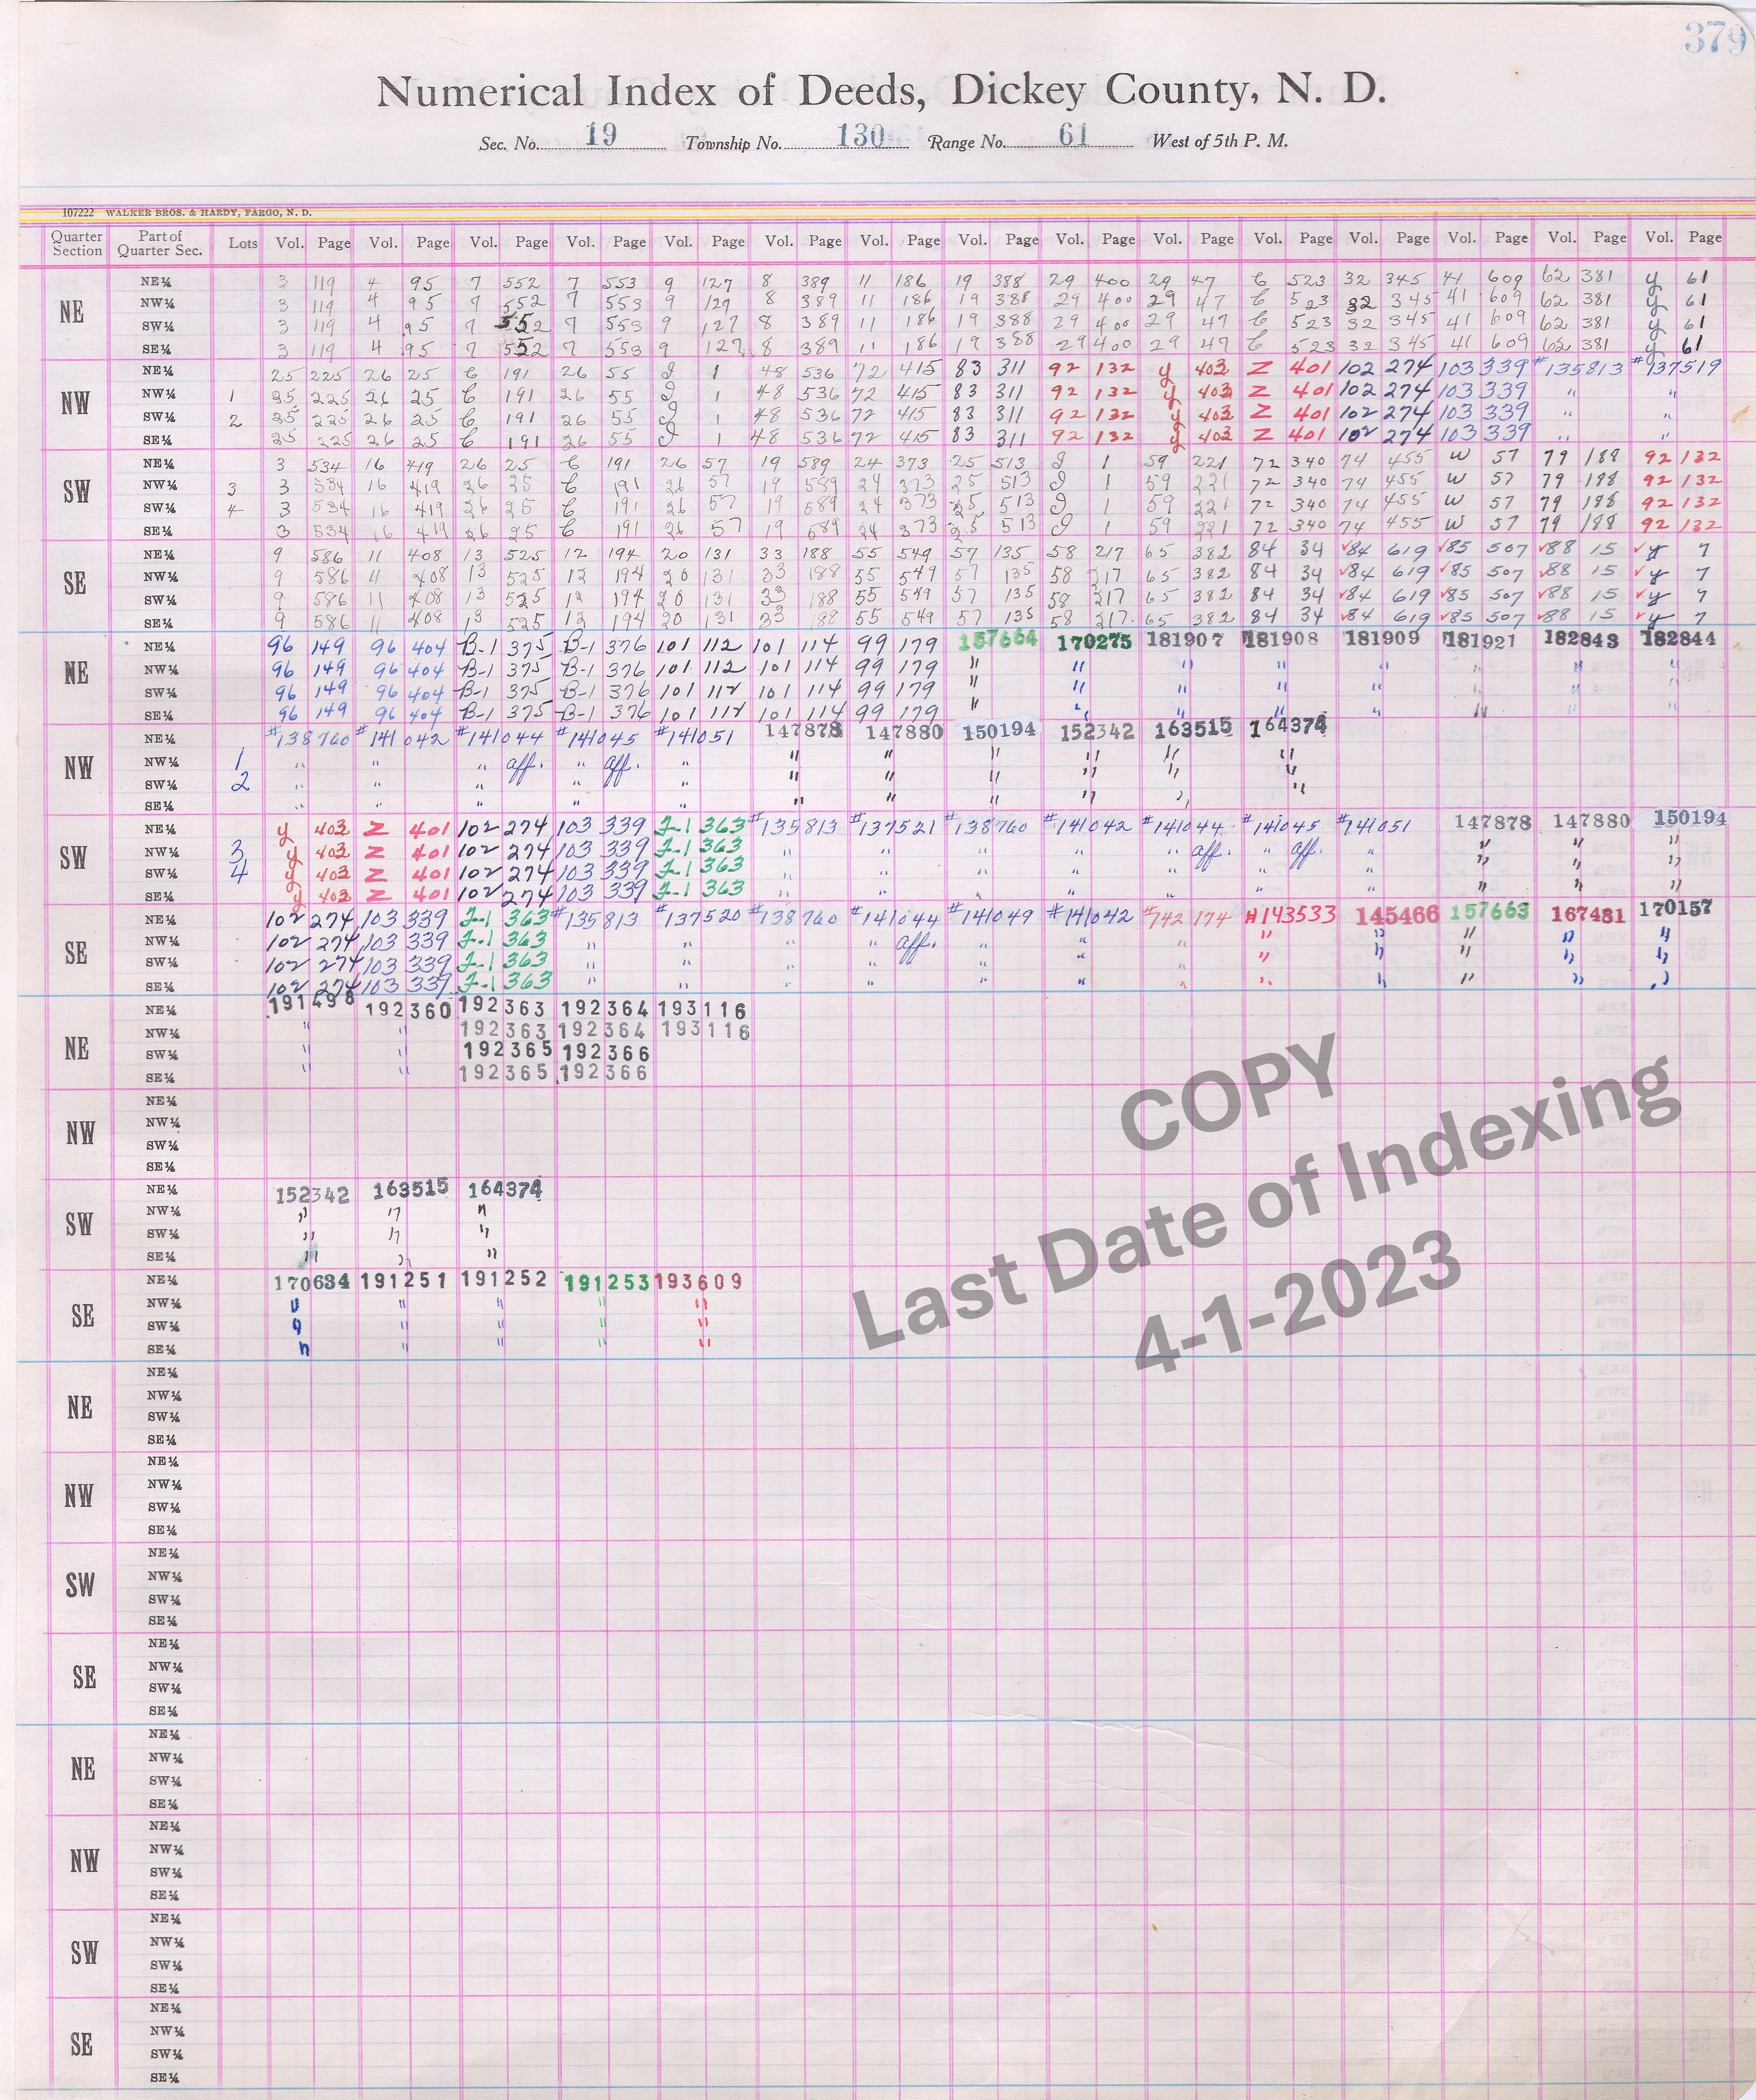 379
Numerical Index of Deeds, Dickey County, N. D.
Sec. No. 19 Township No. 130 Range No. 61 West of 5th P. M.
107222 WALKER BROS. & HARDY, FARGO, N. D.
Quarter Section Part of Quarter Sec. Lots Vol. Page Vol. Page Vol. Page Vol. Page Vol. Page Vol. Page Vol. Page Vol. Page Vol. Page Vol. Page Vol. Page Vol. Page Vol. Page Vol. Page Vol. Page
NE
NE¼ 3 119 4 95 7 552 7 553 9 127 8 389 11 186 19 388 29 400 29 47 C 523 32 345 41 609 62 381 y 61
NW¼ 3 119 4 95 7 552 7 553 9 129 8 389 11 186 19 388 29 400 29 47 C 523 32 345 41 609 62 381 y 61
SW¼ 3 119 4 95 7 552 7 553 9 127 8 389 11 186 19 388 29 400 29 47 C 523 32 345 41 609 62 381 y 61
SE¼ 3 119 4 95 7 552 7 553 9 127 8 389 11 186 19 388 29 400 29 47 C 523 32 345 41 609 62 381 y 61
NW
NE¼ 25 225 26 25 C 191 26 55 J 1 48 536 72 415 83 311 92 132 y 403 Z 401 102 274 103 339 #135813 #137519
NW¼ 1 25 225 26 25 C 191 26 55 J 1 48 536 72 415 83 311 92 132 y 403 Z 401 102 274 103 339 " "
SW¼ 2 25 225 26 25 C 191 26 55 J 1 48 536 72 415 83 311 92 132 y 403 Z 401 102 274 103 339 " "
SE¼ 25 225 26 25 C 191 26 55 J 1 48 536 72 415 83 311 92 132 y 403 Z 401 102 274 103 339 " "
SW
NE¼ 3 534 16 419 26 25 C 191 26 57 19 589 24 373 25 513 J 1 59 221 72 340 74 455 W 57 79 188 92 132
NW¼ 3 3 534 16 419 26 25 C 191 26 57 19 589 24 373 25 513 J 1 59 221 72 340 74 455 W 57 79 188 92 132
SW¼ 4 3 534 16 419 26 25 C 191 26 57 19 589 24 373 25 513 J 1 59 221 72 340 74 455 W 57 79 188 92 132
SE¼ 3 534 16 419 26 25 C 191 26 57 19 589 24 373 25 513 J 1 59 221 72 340 74 455 W 57 79 188 92 132
SE
NE¼ 9 586 11 408 13 525 12 194 20 131 33 188 55 549 57 135 58 217 65 382 84 34 √84 619 √85 507 √88 15 √y 7
NW¼ 9 586 11 408 13 525 12 194 20 131 33 188 55 549 57 135 58 217 65 382 84 34 √84 619 √85 507 √88 15 √y 7
SW¼ 9 586 11 408 13 525 12 194 20 131 33 188 55 549 57 135 58 217 65 382 84 34 √84 619 √85 507 √88 15 √y 7
SE¼ 9 586 11 408 13 525 12 194 20 131 33 188 55 549 57 135 58 217 65 382 84 34 √84 619 √85 507 √88 15 √y 7
NE
NE¼ 96 149 96 404 B-1 375 B-1 376 101 112 101 114 99 179 157664 170275 181907 181908 181909 181921 182843 182844
NW¼ 96 149 96 404 B-1 375 B-1 376 101 112 101 114 99 179 " " " " " " " "
SW¼ 96 149 96 404 B-1 375 B-1 376 101 112 101 114 99 179 " " " " " " " "
SE¼ 96 149 96 404 B-1 375 B-1 376 101 112 101 114 99 179 " " " " " " " "
NW
NE¼ #138760 #141042 #141044 #141045 #141051 147878 147880 150194 152342 163515 164374
NW¼ 1 " " " aff. " aff. " " " " " " "
SW¼ 2 " " " " " " " " " " "
SE¼ " " " " " " " " " " "
SW
NE¼ y 403 Z 401 102 274 103 339 J-1 363 #135813 #137521 #138760 #141042 #141044 #141045 #141051 147878 147880 150194
NW¼ 3 y 403 Z 401 102 274 103 339 J-1 363 " " " " " aff. " aff. " " " "
SW¼ 4 y 403 Z 401 102 274 103 339 J-1 363 " " " " " " " " " "
SE¼ y 403 Z 401 102 274 103 339 J-1 363 " " " " " " " " " "
SE
NE¼ 102 274 103 339 J-1 363 #135813 #137520 #138760 #141044 #141049 #141042 #142174 #143533 145466 157663 167481 170157
NW¼ 102 274 103 339 J-1 363 " " " " aff. " " " " " " " "
SW¼ 102 274 103 339 J-1 363 " " " " " " " " " " " "
SE¼ 102 274 103 339 J-1 363 " " " " " " " " " " " "
NE
NE¼ 191498 192360 192363 192364 193116
NW¼ " " 192363 192364 193116
SW¼ " " 192365 192366
SE¼ " " 192365 192366
NW
NE¼
NW¼
SW¼
SE¼
SW
NE¼ 152342 163515 164374
NW¼ " " "
SW¼ " " "
SE¼ " " "
SE
NE¼ 170634 191251 191252 191253 193609
NW¼ " " " " "
SW¼ " " " " "
SE¼ " " " " "
COPY
Last Date of Indexing
4-1-2023
NE
NE¼
NW¼
SW¼
SE¼
NW
NE¼
NW¼
SW¼
SE¼
SW
NE¼
NW¼
SW¼
SE¼
SE
NE¼
NW¼
SW¼
SE¼
NE
NE¼
NW¼
SW¼
SE¼
NW
NE¼
NW¼
SW¼
SE¼
SW
NE¼
NW¼
SW¼
SE¼
SE
NE¼
NW¼
SW¼
SE¼